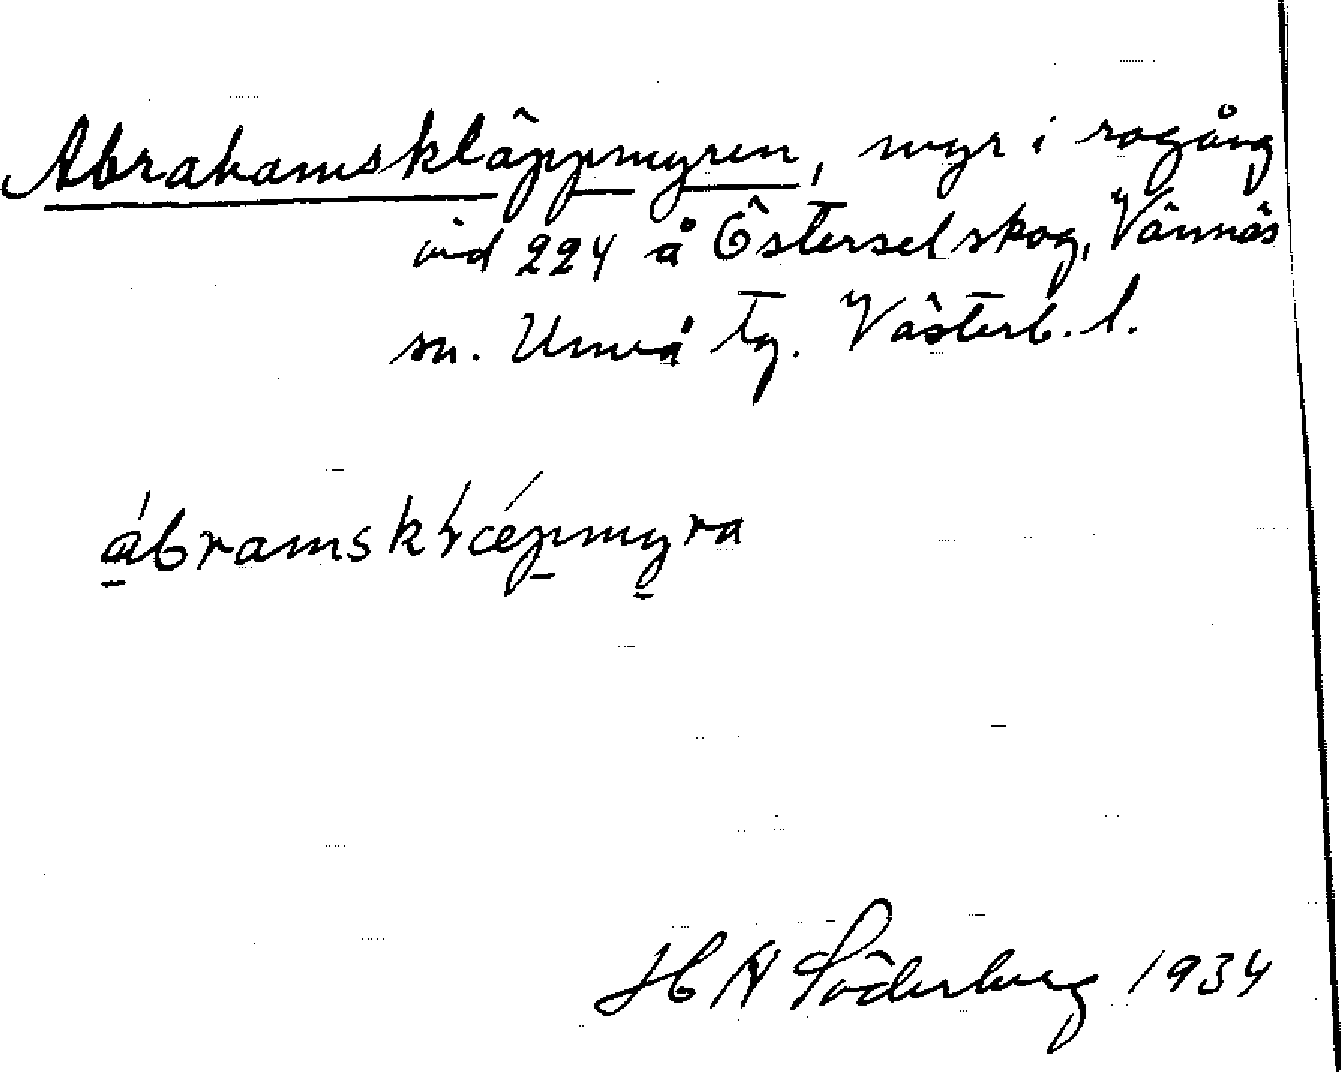 Abrahamskläppmyren, myr i rågång
vid 224 å Österselskog, Vännäs
sn. Umeå tg. Västerb. l.
ábramskłǽpmyra
H N Söderberg 1934